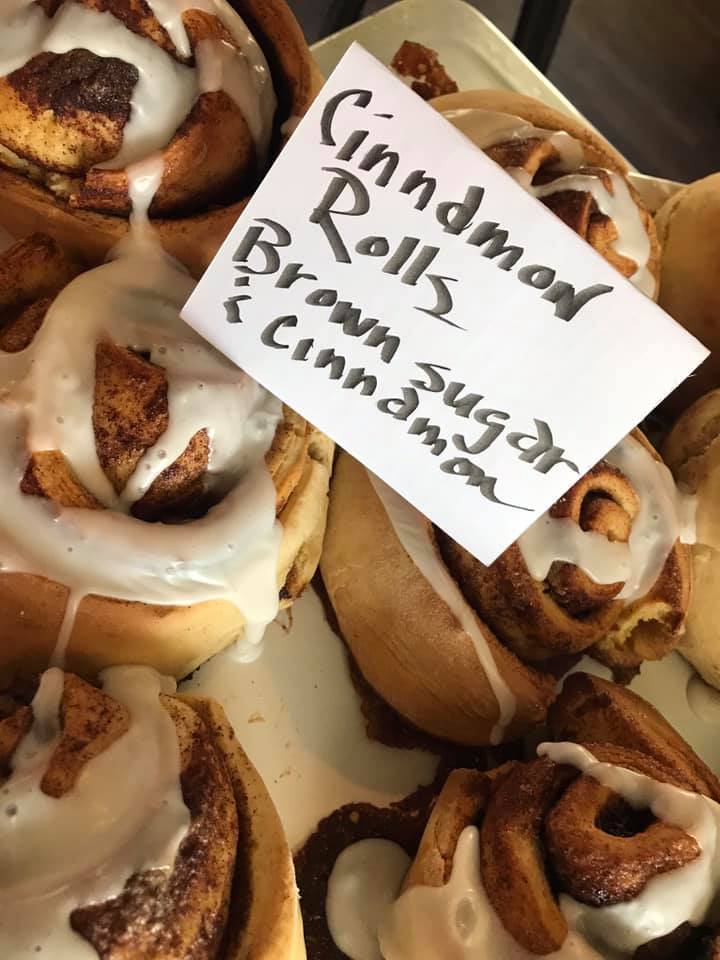 Cinnamon
Rolls
Brown sugar
& Cinnamon